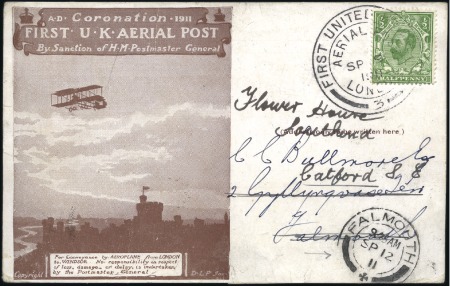 A.D. Coronation 1911
FIRST U.K. AERIAL POST
By Sanction of H.M. Postmaster General
For Conveyance by AEROPLANE from LONDON
to WINDSOR. No responsibility in respect
of loss, damage, or delay, is undertaken
by the Postmaster General.
Copyright
FIRST UNITED
AERIAL
SP
LONDON
3
HALFPENNY
Flower House
Southend
(Address only to be written here.)
C C Bullmore Esq
Catford S.E
2
FALMOUTH
AM
SP 12
11